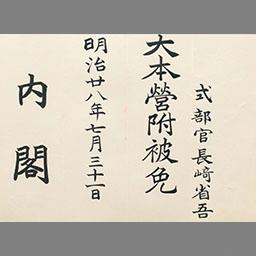 式部官長﨑省吾
大本營附被免
明治廿八年七月三十一日
内閣